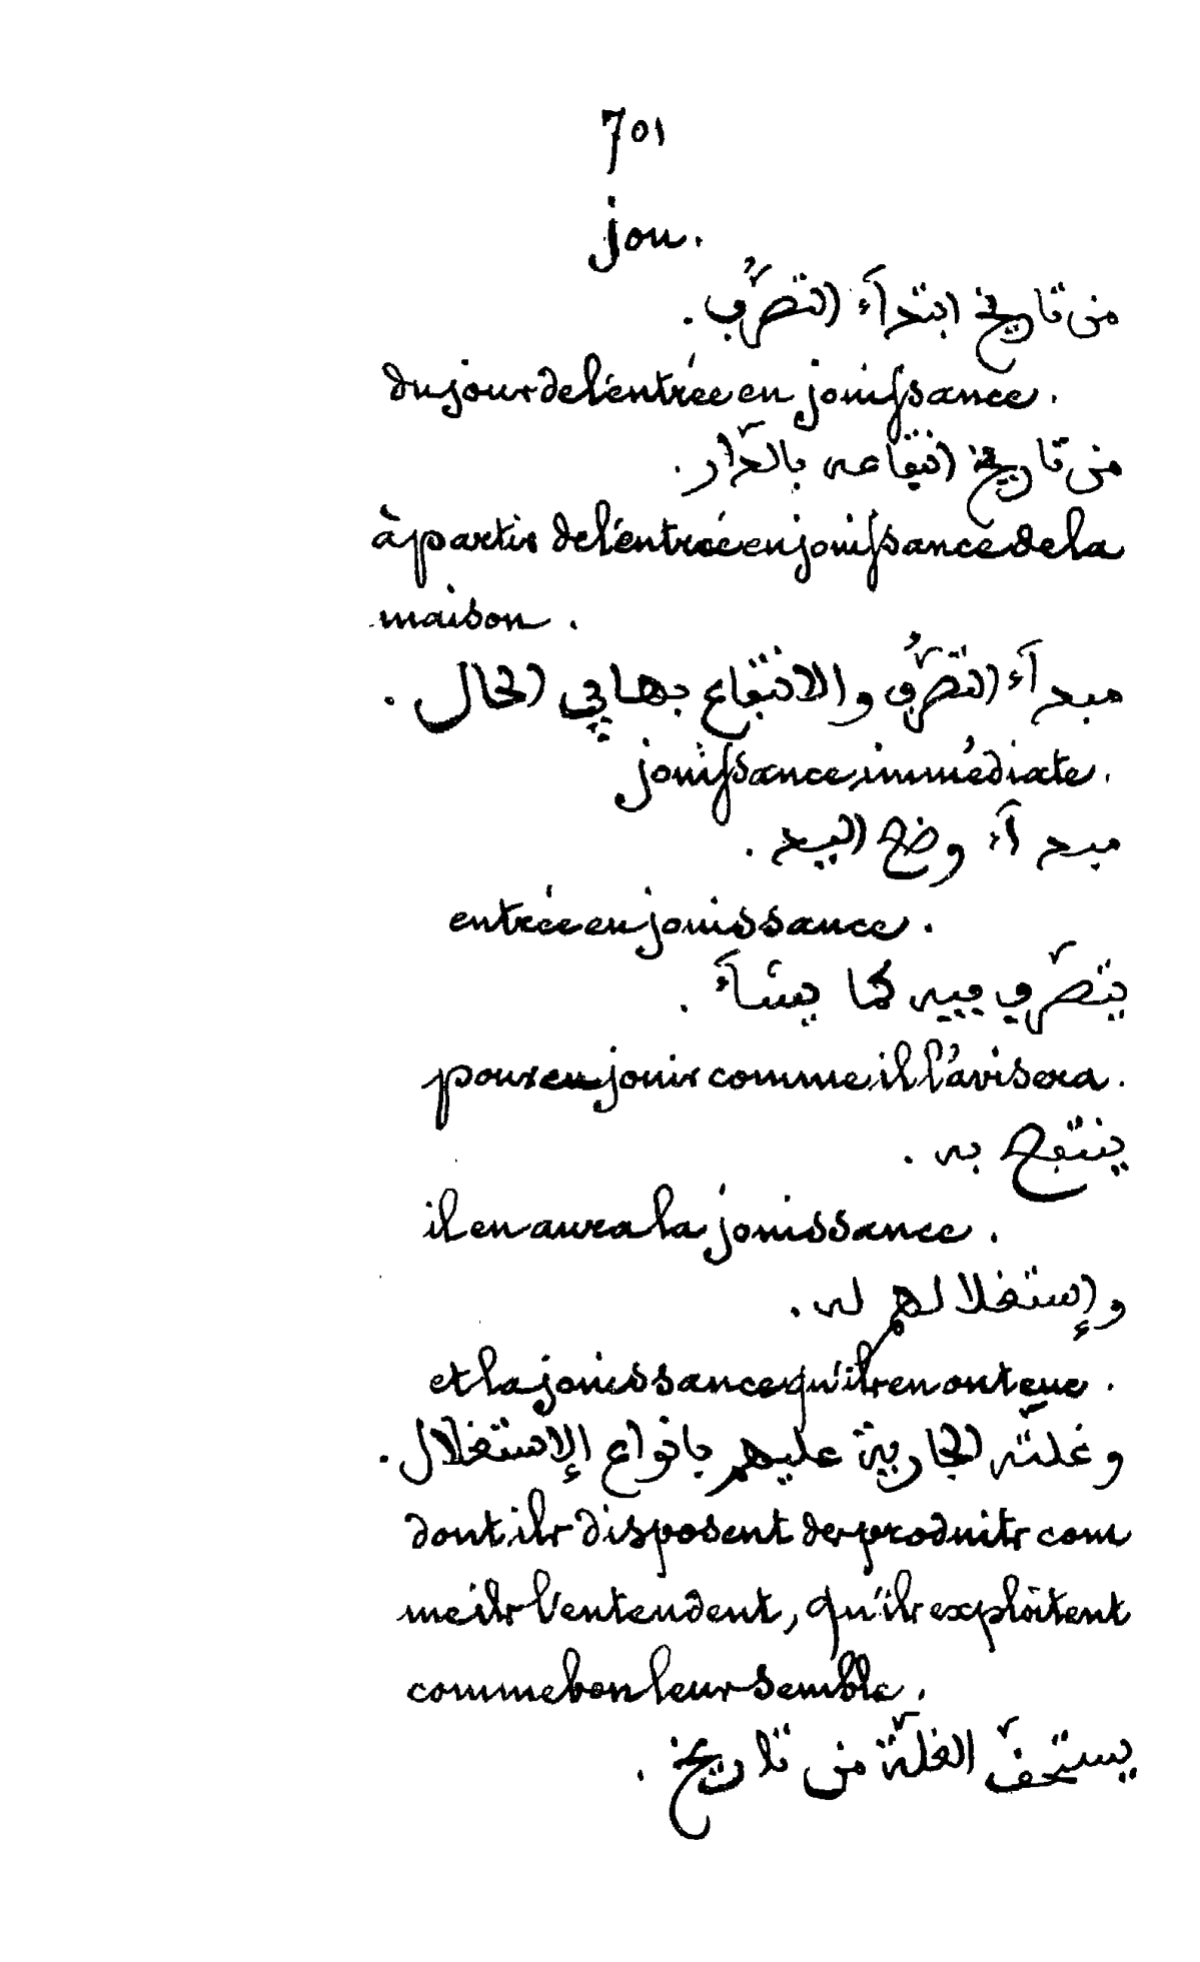 701
jou.
من تاريخ ابتدآء التصرّف.
du jour de l'entrée en jouissance.
من تاريخ انتفاعه بالدّار.
à partir de l'entrée en jouissance de la
maison.
مبدآء التصرّف والانتفاع بها في الحال.
jouissance immédiate.
مبدآء وضع اليد.
entrée en jouissance.
يتصرّف فيه كما يشآء.
pour en jouir comme il l'avisera.
ينتفع به.
il en aura la jouissance.
وإستغلالهم له.
et la jouissance qu'ils en ont eue.
وغلّته الجارية عليهم بانواع الإستغلال.
dont ils disposent des produits com
me ils l'entendent, qu'ils exploitent
comme bon leur semble.
يستحقّ الغلّة من تاريخ.